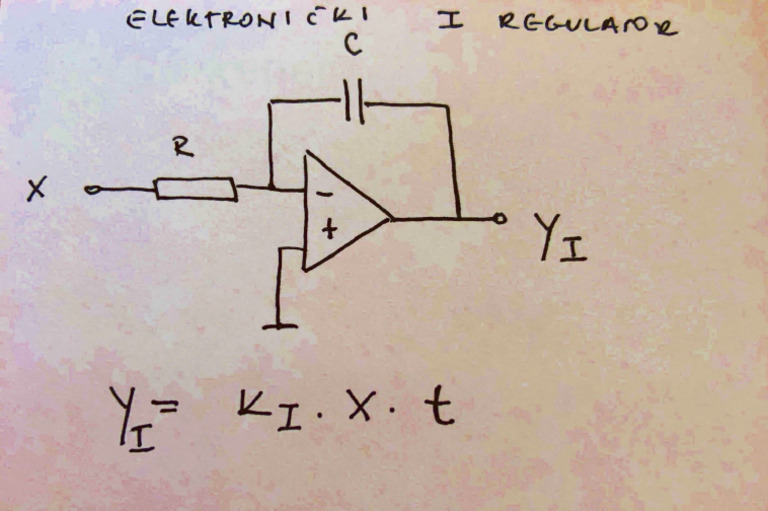 ELEKTRONIČKI I REGULATOR
C
R
X
-
+
YI
YI = KI · X · t